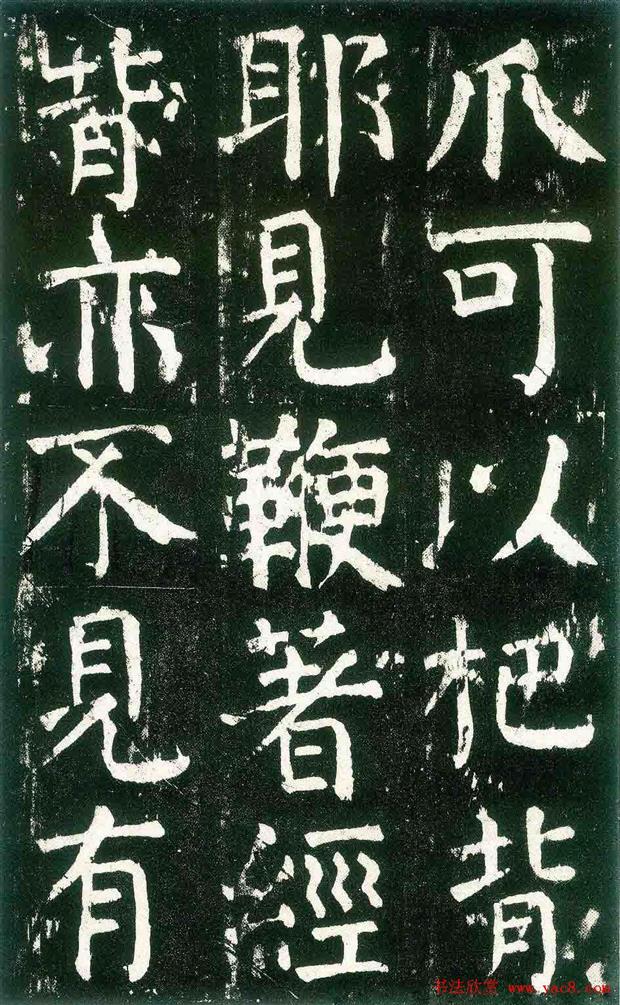 爪可以杷背
耶見鞭著經
背亦不見有
书法欣赏 www.yac8.com